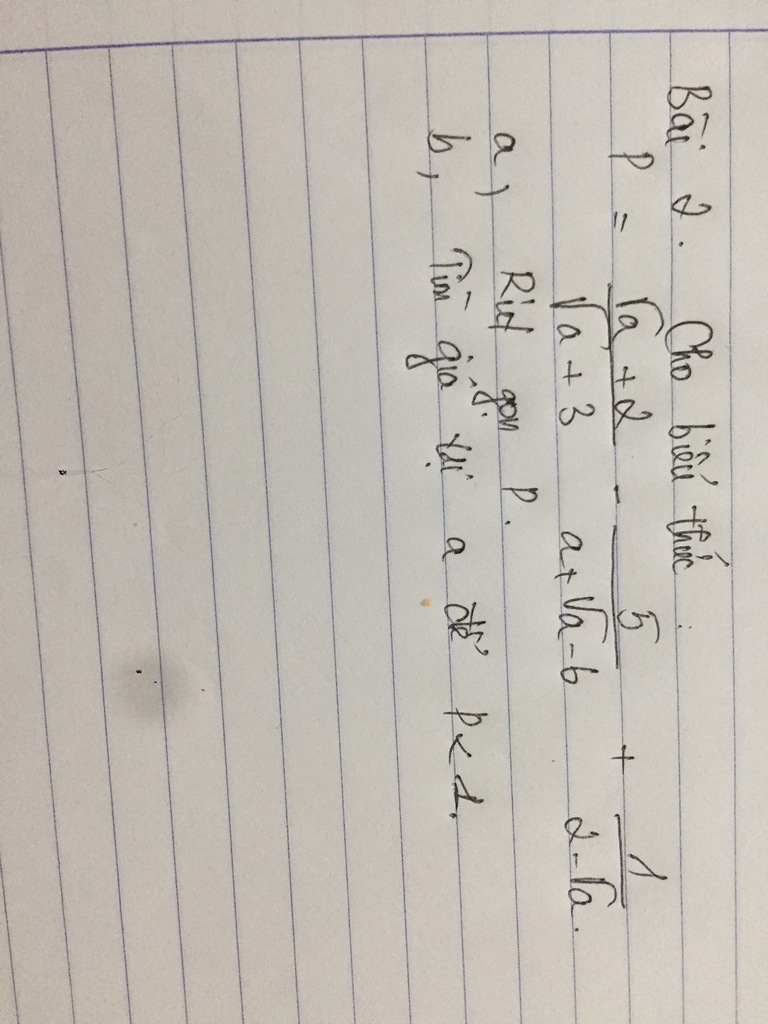 Bài 2. Cho biểu thức :
P = (√a + 2)/(√a + 3) - 5/(a + √a - 6) + 1/(2 - √a).
a, Rút gọn P.
b, Tìm giá trị a để P < 1.